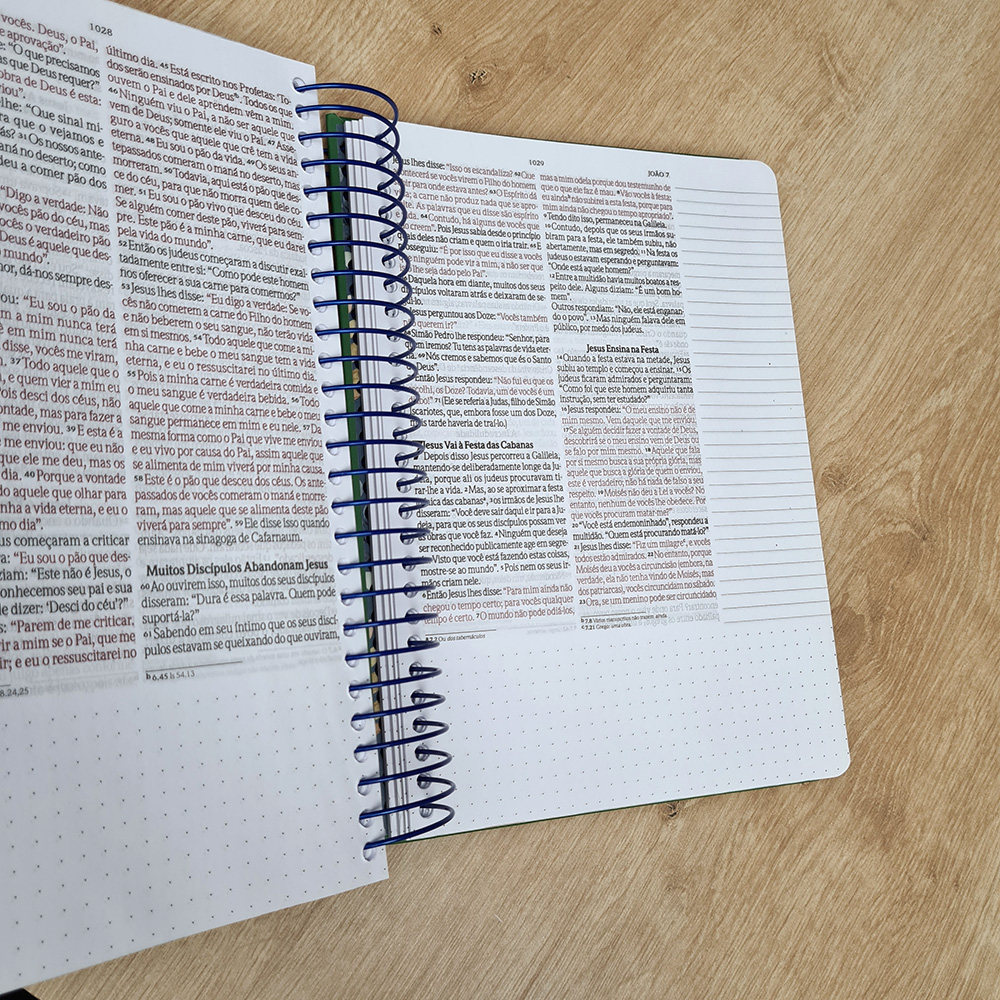 1028
vocês. Deus, o Pai,
e aprovação”.
e: “O que precisamos
as que Deus requer?”
obra de Deus é esta:
viou”.
lhe: “Que sinal mi-
ra que o vejamos e
ás? 31 Os nossos ante-
aná no deserto; como
deu a comer pão dos
“Digo a verdade: Não
vocês pão do céu, mas
vocês o verdadeiro pão
Deus é aquele que des-
mundo”.
nor, dá-nos sempre des-
ou: “Eu sou o pão da
a mim nunca terá
ê em mim nunca terá
disse, vocês me viram,
37 Todo aquele que o
i, e quem vier a mim eu
Pois desci dos céus, não
ontade, mas para fazer a
me enviou. 39 E esta é a
me enviou: que eu não
que ele me deu, mas os
dia. 40 Porque a vontade
do aquele que olhar para
nha a vida eterna, e eu o
mo dia”.
us começaram a criticar
ra: “Eu sou o pão que des-
ziam: “Este não é Jesus, o
onhecemos seu pai e sua
e dizer: ‘Desci do céu’?”
s: “Parem de me criticar.
vir a mim se o Pai, que me
ir; e eu o ressuscitarei no
8.24,25
último dia. 45 Está escrito nos Profetas: ‘To-
dos serão ensinados por Deus’b. Todos os que
ouvem o Pai e dele aprendem vêm a mim.
46 Ninguém viu o Pai, a não ser aquele que
vem de Deus; somente ele viu o Pai. 47 Asse-
guro a vocês que aquele que crê tem a vida
eterna. 48 Eu sou o pão da vida. 49 Os seus an-
tepassados comeram o maná no deserto, mas
morreram. 50 Todavia, aqui está o pão que des-
ce do céu, para que não morra quem dele co-
mer. 51 Eu sou o pão vivo que desceu do céu.
Se alguém comer deste pão, viverá para sem-
pre. Este pão é a minha carne, que eu darei
pela vida do mundo”.
52 Então os judeus começaram a discutir exal-
tadamente entre si: “Como pode este homem
nos oferecer a sua carne para comermos?”
53 Jesus lhes disse: “Eu digo a verdade: Se vo-
cês não comerem a carne do Filho do homem
e não beberem o seu sangue, não terão vida
em si mesmos. 54 Todo aquele que come a mi-
nha carne e bebe o meu sangue tem a vida
eterna, e eu o ressuscitarei no último dia.
55 Pois a minha carne é verdadeira comida e
o meu sangue é verdadeira bebida. 56 Todo
aquele que come a minha carne e bebe o meu
sangue permanece em mim e eu nele. 57 Da
mesma forma como o Pai que vive me enviou
e eu vivo por causa do Pai, assim aquele que
se alimenta de mim viverá por minha causa.
58 Este é o pão que desceu dos céus. Os ante-
passados de vocês comeram o maná e morre-
ram, mas aquele que se alimenta deste pão
viverá para sempre”. 59 Ele disse isso quando
ensinava na sinagoga de Cafarnaum.
Muitos Discípulos Abandonam Jesus
60 Ao ouvirem isso, muitos dos seus discípulos
disseram: “Dura é essa palavra. Quem pode
suportá-la?”
61 Sabendo em seu íntimo que os seus discí-
pulos estavam se queixando do que ouviram,
b 6.45 Is 54.13
1029
JOÃO 7
Jesus lhes disse: “Isso os escandaliza? 62 Que
acontecerá se vocês virem o Filho do homem
subir para onde estava antes? 63 O Espírito dá
vida; a carne não produz nada que se apro-
veite. As palavras que eu disse são espírito
e vida. 64 Contudo, há alguns de vocês que
não creem”. Pois Jesus sabia desde o princípio
quais deles não criam e quem o iria trair. 65 E
prosseguiu: “É por isso que eu disse a vocês
que ninguém pode vir a mim, a não ser que
isto lhe seja dado pelo Pai”.
66 Daquela hora em diante, muitos dos seus
discípulos voltaram atrás e deixaram de se-
gui-lo.
67 Jesus perguntou aos Doze: “Vocês também
não querem ir?”
68 Simão Pedro lhe respondeu: “Senhor, para
quem iremos? Tu tens as palavras de vida eter-
na. 69 Nós cremos e sabemos que és o Santo
de Deus”.
70 Então Jesus respondeu: “Não fui eu que os
escolhi, os Doze? Todavia, um de vocês é um
diabo!” 71 (Ele se referia a Judas, filho de Simão
Iscariotes, que, embora fosse um dos Doze,
mais tarde haveria de traí-lo.)
Jesus Vai à Festa das Cabanas
Depois disso Jesus percorreu a Galileia,
mantendo-se deliberadamente longe da Ju-
deia, porque ali os judeus procuravam ti-
rar-lhe a vida. 2 Mas, ao se aproximar a festa
judaica das cabanas a, 3 os irmãos de Jesus lhe
disseram: “Você deve sair daqui e ir para a Ju-
deia, para que os seus discípulos possam ver
as obras que você faz. 4 Ninguém que deseja
ser reconhecido publicamente age em segre-
do. Visto que você está fazendo estas coisas,
mostre-se ao mundo”. 5 Pois nem os seus ir-
mãos criam nele.
6 Então Jesus lhes disse: “Para mim ainda não
chegou o tempo certo; para vocês qualquer
tempo é certo. 7 O mundo não pode odiá-los,
a 7.2 Ou dos tabernáculos
mas a mim odeia porque dou testemunho de
que o que ele faz é mau. 8 Vão vocês à festa;
eu ainda b não subirei a esta festa, porque para
mim ainda não chegou o tempo apropriado”.
9 Tendo dito isso, permaneceu na Galileia.
10 Contudo, depois que os seus irmãos su-
biram para a festa, ele também subiu, não
abertamente, mas em segredo. 11 Na festa os
judeus o estavam esperando e perguntavam:
“Onde está aquele homem?”
12 Entre a multidão havia muitos boatos a res-
peito dele. Alguns diziam: “É um bom ho-
mem”.
Outros respondiam: “Não, ele está enganan-
do o povo”. 13 Mas ninguém falava dele em
público, por medo dos judeus.
Jesus Ensina na Festa
14 Quando a festa estava na metade, Jesus
subiu ao templo e começou a ensinar. 15 Os
judeus ficaram admirados e perguntaram:
“Como foi que este homem adquiriu tanta
instrução, sem ter estudado?”
16 Jesus respondeu: “O meu ensino não é de
mim mesmo. Vem daquele que me enviou.
17 Se alguém decidir fazer a vontade de Deus,
descobrirá se o meu ensino vem de Deus ou
se falo por mim mesmo. 18 Aquele que fala
por si mesmo busca a sua própria glória, mas
aquele que busca a glória de quem o enviou,
este é verdadeiro; não há nada de falso a seu
respeito. 19 Moisés não deu a Lei a vocês? No
entanto, nenhum de vocês lhe obedece. Por
que vocês procuram matar-me?”
20 “Você está endemoninhado”, respondeu a
multidão. “Quem está procurando matá-lo?”
21 Jesus lhes disse: “Fiz um milagre c, e vocês
todos estão admirados. 22 No entanto, porque
Moisés deu a vocês a circuncisão (embora, na
verdade, ela não tenha vindo de Moisés, mas
dos patriarcas), vocês circuncidam no sábado.
23 Ora, se um menino pode ser circuncidado
b 7.8 Vários manuscritos não trazem ainda.
c 7.21 Grego: uma obra.